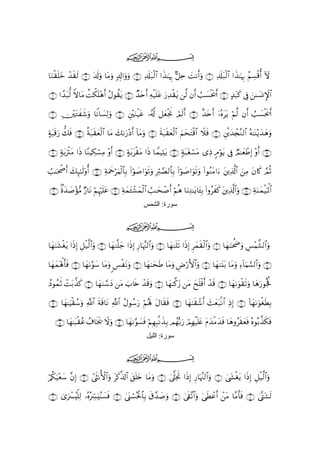 بِسْمِ اللَّهِ الرَّحْمَٰنِ الرَّحِيمِ
لَا أُقْسِمُ بِهَٰذَا الْبَلَدِ ۝ وَأَنتَ حِلٌّ بِهَٰذَا الْبَلَدِ ۝ وَوَالِدٍ وَمَا وَلَدَ ۝ لَقَدْ خَلَقْنَا
الْإِنسَانَ فِي كَبَدٍ ۝ أَيَحْسَبُ أَن لَّن يَقْدِرَ عَلَيْهِ أَحَدٌ ۝ يَقُولُ أَهْلَكْتُ مَالًا لُّبَدًا ۝
أَيَحْسَبُ أَن لَّمْ يَرَهُ أَحَدٌ ۝ أَلَمْ نَجْعَل لَّهُ عَيْنَيْنِ ۝ وَلِسَانًا وَشَفَتَيْنِ ۝
وَهَدَيْنَاهُ النَّجْدَيْنِ ۝ فَلَا اقْتَحَمَ الْعَقَبَةَ ۝ وَمَا أَدْرَاكَ مَا الْعَقَبَةُ ۝ فَكُّ رَقَبَةٍ
۝ أَوْ إِطْعَامٌ فِي يَوْمٍ ذِي مَسْغَبَةٍ ۝ يَتِيمًا ذَا مَقْرَبَةٍ ۝ أَوْ مِسْكِينًا ذَا مَتْرَبَةٍ ۝
ثُمَّ كَانَ مِنَ الَّذِينَ آمَنُوا وَتَوَاصَوْا بِالصَّبْرِ وَتَوَاصَوْا بِالْمَرْحَمَةِ ۝ أُولَٰئِكَ أَصْحَابُ
الْمَيْمَنَةِ ۝ وَالَّذِينَ كَفَرُوا بِآيَاتِنَا هُمْ أَصْحَابُ الْمَشْأَمَةِ ۝ عَلَيْهِمْ نَارٌ مُّؤْصَدَةٌ ۝
سورة: الشمس
بِسْمِ اللَّهِ الرَّحْمَٰنِ الرَّحِيمِ
وَالشَّمْسِ وَضُحَاهَا ۝ وَالْقَمَرِ إِذَا تَلَاهَا ۝ وَالنَّهَارِ إِذَا جَلَّاهَا ۝ وَاللَّيْلِ إِذَا يَغْشَاهَا
۝ وَالسَّمَاءِ وَمَا بَنَاهَا ۝ وَالْأَرْضِ وَمَا طَحَاهَا ۝ وَنَفْسٍ وَمَا سَوَّاهَا ۝ فَأَلْهَمَهَا
فُجُورَهَا وَتَقْوَاهَا ۝ قَدْ أَفْلَحَ مَن زَكَّاهَا ۝ وَقَدْ خَابَ مَن دَسَّاهَا ۝ كَذَّبَتْ ثَمُودُ
بِطَغْوَاهَا ۝ إِذِ انبَعَثَ أَشْقَاهَا ۝ فَقَالَ لَهُمْ رَسُولُ اللَّهِ نَاقَةَ اللَّهِ وَسُقْيَاهَا ۝
فَكَذَّبُوهُ فَعَقَرُوهَا فَدَمْدَمَ عَلَيْهِمْ رَبُّهُم بِذَنبِهِمْ فَسَوَّاهَا ۝ وَلَا يَخَافُ عُقْبَاهَا ۝
سورة: الليل
بِسْمِ اللَّهِ الرَّحْمَٰنِ الرَّحِيمِ
وَاللَّيْلِ إِذَا يَغْشَىٰ ۝ وَالنَّهَارِ إِذَا تَجَلَّىٰ ۝ وَمَا خَلَقَ الذَّكَرَ وَالْأُنثَىٰ ۝ إِنَّ سَعْيَكُمْ
لَشَتَّىٰ ۝ فَأَمَّا مَنْ أَعْطَىٰ وَاتَّقَىٰ ۝ وَصَدَّقَ بِالْحُسْنَىٰ ۝ فَسَنُيَسِّرُهُ لِلْيُسْرَىٰ ۝